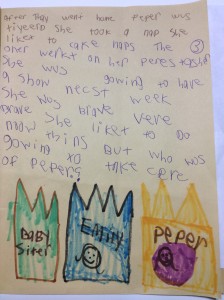 after they went home peper wus
tiyeerd She took a nap she
liket to take naps The ③
oner werkt on her peres togshar
She wus gowing to have
a show necst week
She wos vere
brave brave
now She liket to do
gowing thins But who was
gowing to take cere
of pepers
BaBy
Siter
Emily
Peper